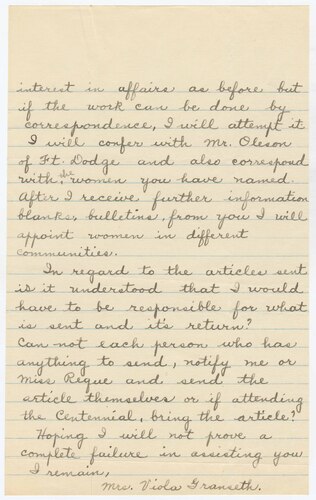 interest in affairs as before but
if the work can be done by
correspondence, I will attempt it
I will confer with Mr. Oleson
of Ft. Dodge and also correspond
with the women you have named.
After I receive further information
blanks, bulletins, from you I will
appoint women in different
communities.
In regard to the articles sent
is it understood that I would
have to be responsible for what
is sent and it's return?
Can not each person who has
anything to send, notify me or
Miss Reque and send the
article themselves or if attending
the Centennial, bring the article?
Hoping I will not prove a
complete failure in assisting you
I remain,
Mrs. Viola Granseth.